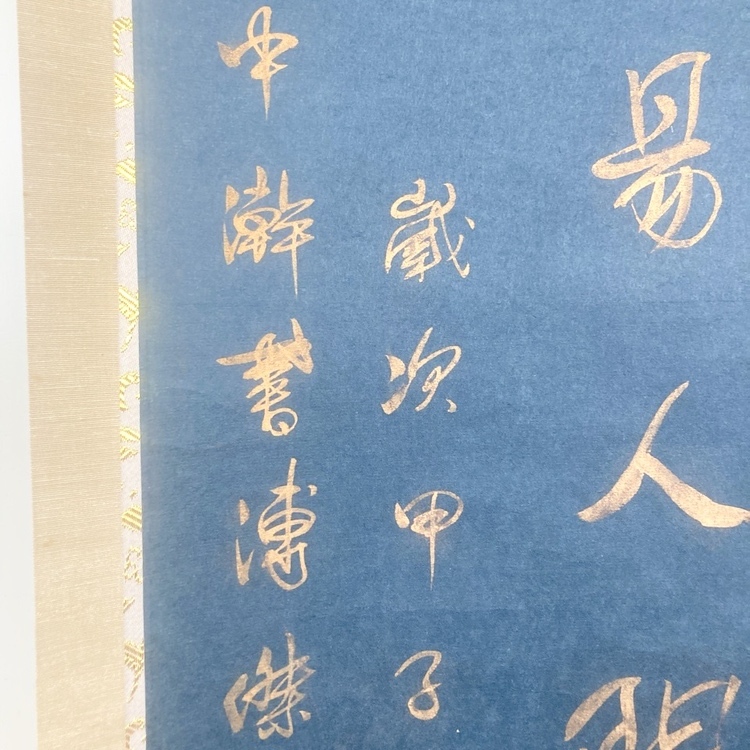 易人
歲次甲子
中澣書溥傑